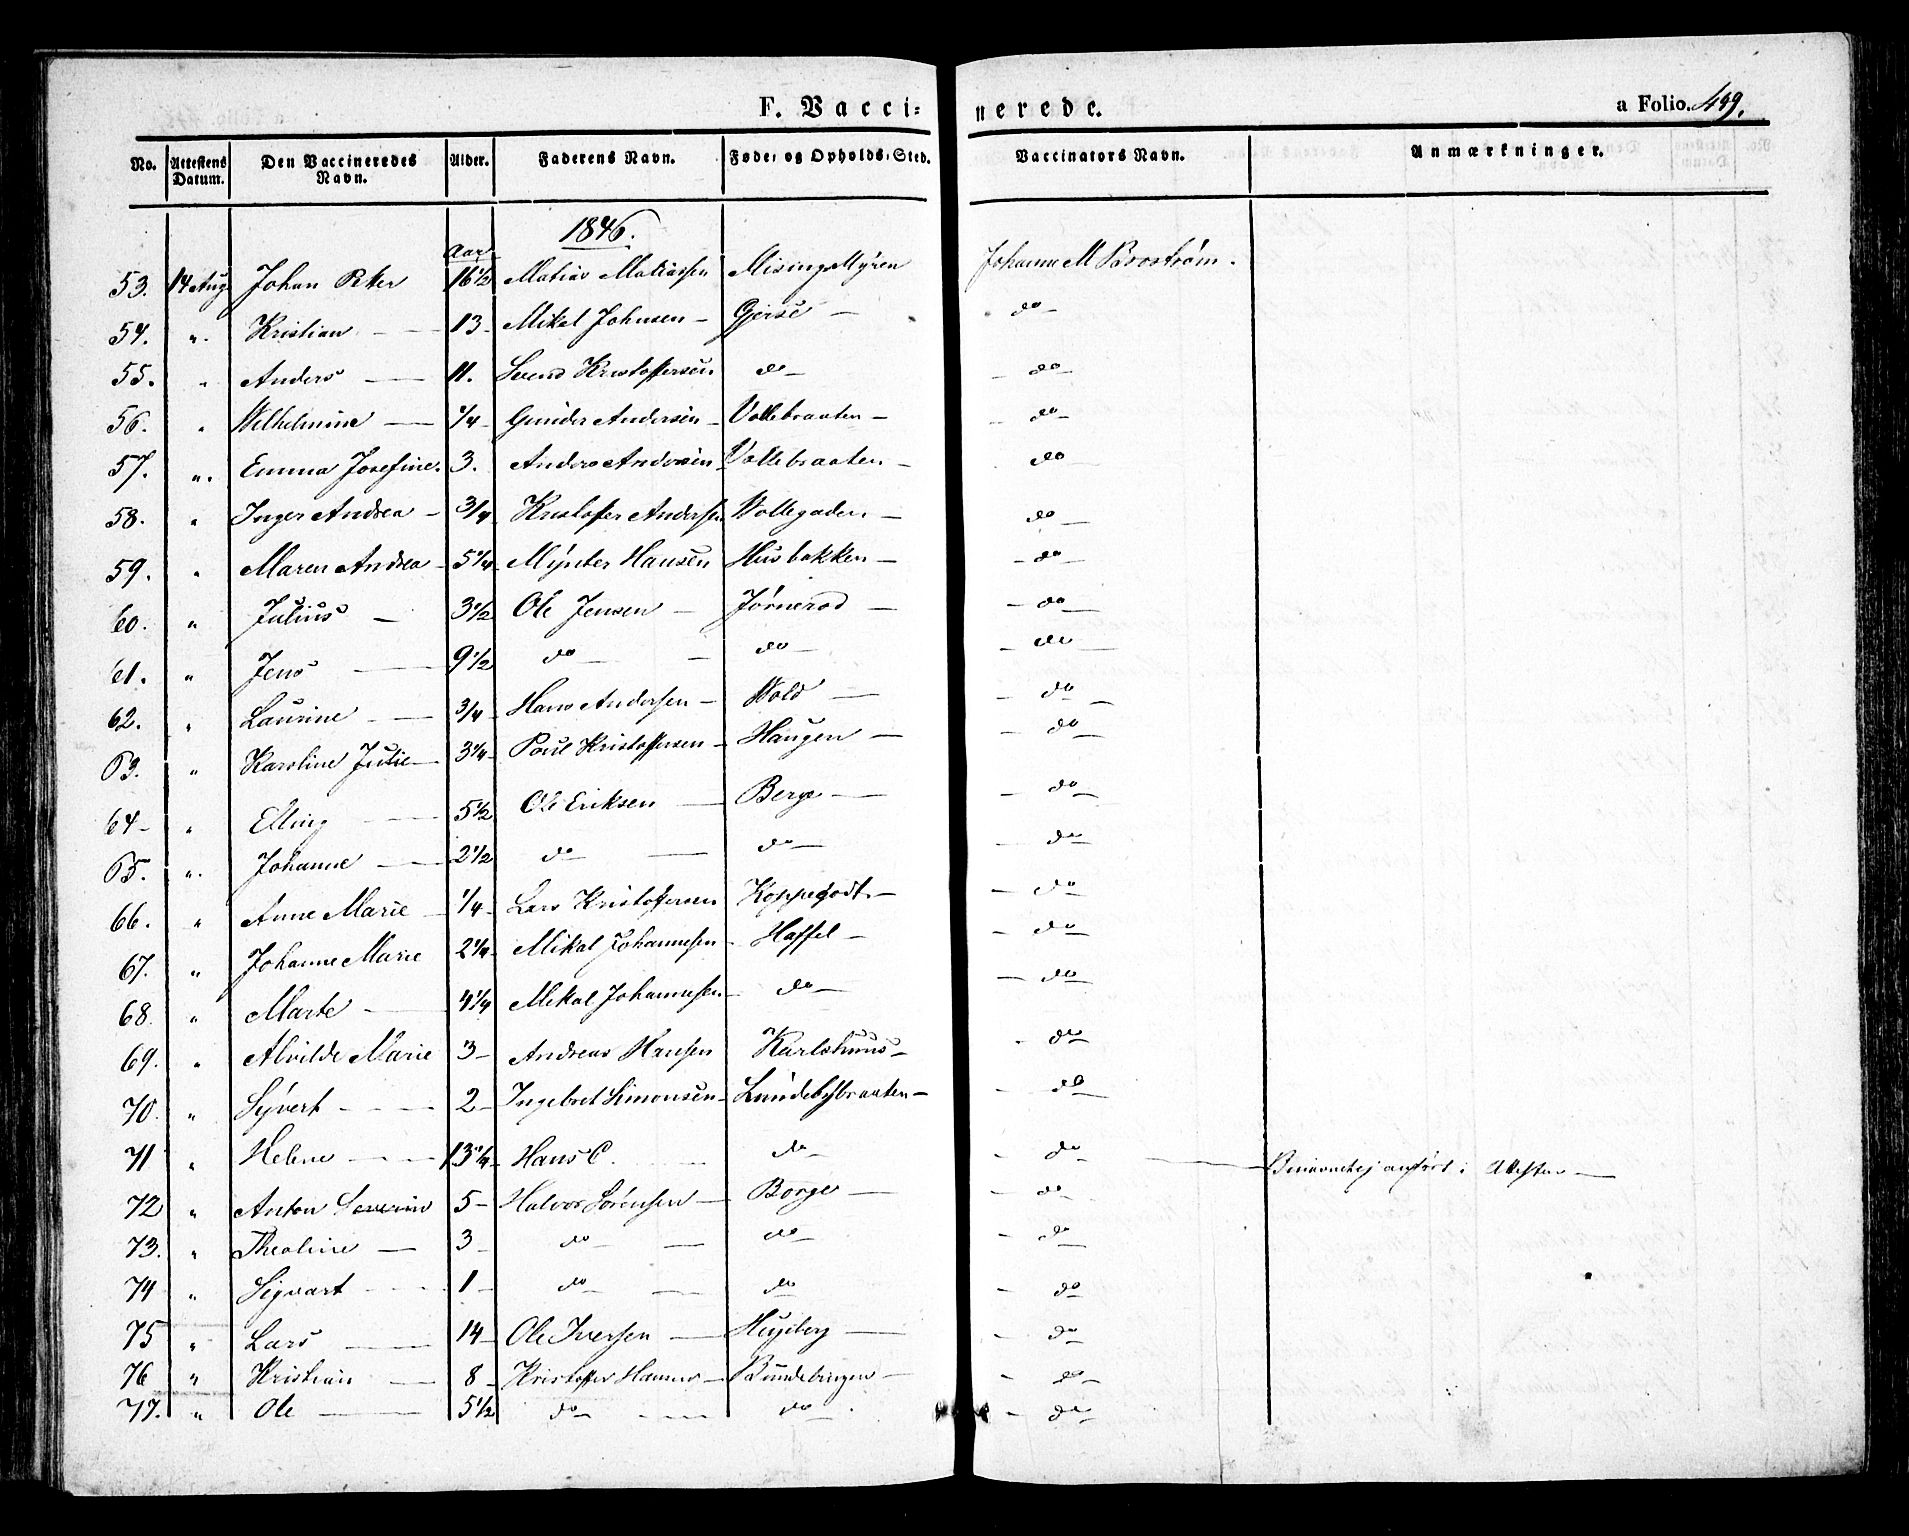 F. Vaccinerede. a Folio. 499.
No. Attestens Datum. Den Vaccineredes Navn. Alder. Faderens Navn. Føde- og Opholds-Sted. Vaccinators Navn. Anmærkninger.
1846.
Aar
53. 14 Aug Johan Peter 16 1/2 Matias Matiassen Misings Myren Johanne M Brostrøm.
54. " Kristian — 13 - Mikel Johnsen - Gjersé — do -
55. " Anders — 11. Svend Kristoffersen do - - do -
56. " Wilhelmine — 1/4 - Gunder Andersen - Vollebraaten - - do -
57. " Emma Josefine. 3. Anders Andersen Vollebraaten - do
58. " Inger Andrea - 3/4 Kristoffer Andersen Wollegaden - do -
59. " Maren Andrea - 5 1/4 - Mÿnter Hansen Husbakken - - do -
60. " Julius - 3 1/2 Ole Jensen - Jørnerød - - do -
61. " Jens — 9 1/2 do - - do - - do -
62. " Laurine — 3/4 - Hans Andersen - Wold — - do -
63. " Karoline Julie - 3 1/4 - Poul Kristoffersen - Haugen - - do -
64 - " Elling — 5 1/2 Ole Eriksen — Berge — - do -
65. " Johanne — 2 1/2 do — do - - do -
66. " Anne Marie - 1/4 - Lars Kristoffersen Koppegodt - - do -
67. " Johanne Marie 2 1/4 - Mikal Johannesen - Haffel - - do -
68. " Marte — 4 1/4 Mikal Johannesen - do - - do -
69. " Alvilde Marie 3 - Andreas Hansen Karlshuus - - do -
70. " Syvert - - - 2 - Ingebret Simonsen - Lundebybraaten - - do -
71 " Helene - - - 13 1/4 - Hans C. do - - do - anført i Attesten —
72 " Anton Severin 5 - Halvor Sørensen - Borge — - do -
73. " Theoline — 3 - do - — do - - do -
74 " Sigvart - - - 1 - do - do - - do -
75 " Lars — 14 - Ole Iversen — Hujeberg — - do -
76 " Kristian — 8 - Kristoffer Hansen - - do -
77. " Ole — 5 1/2 do - - - do - . - do -